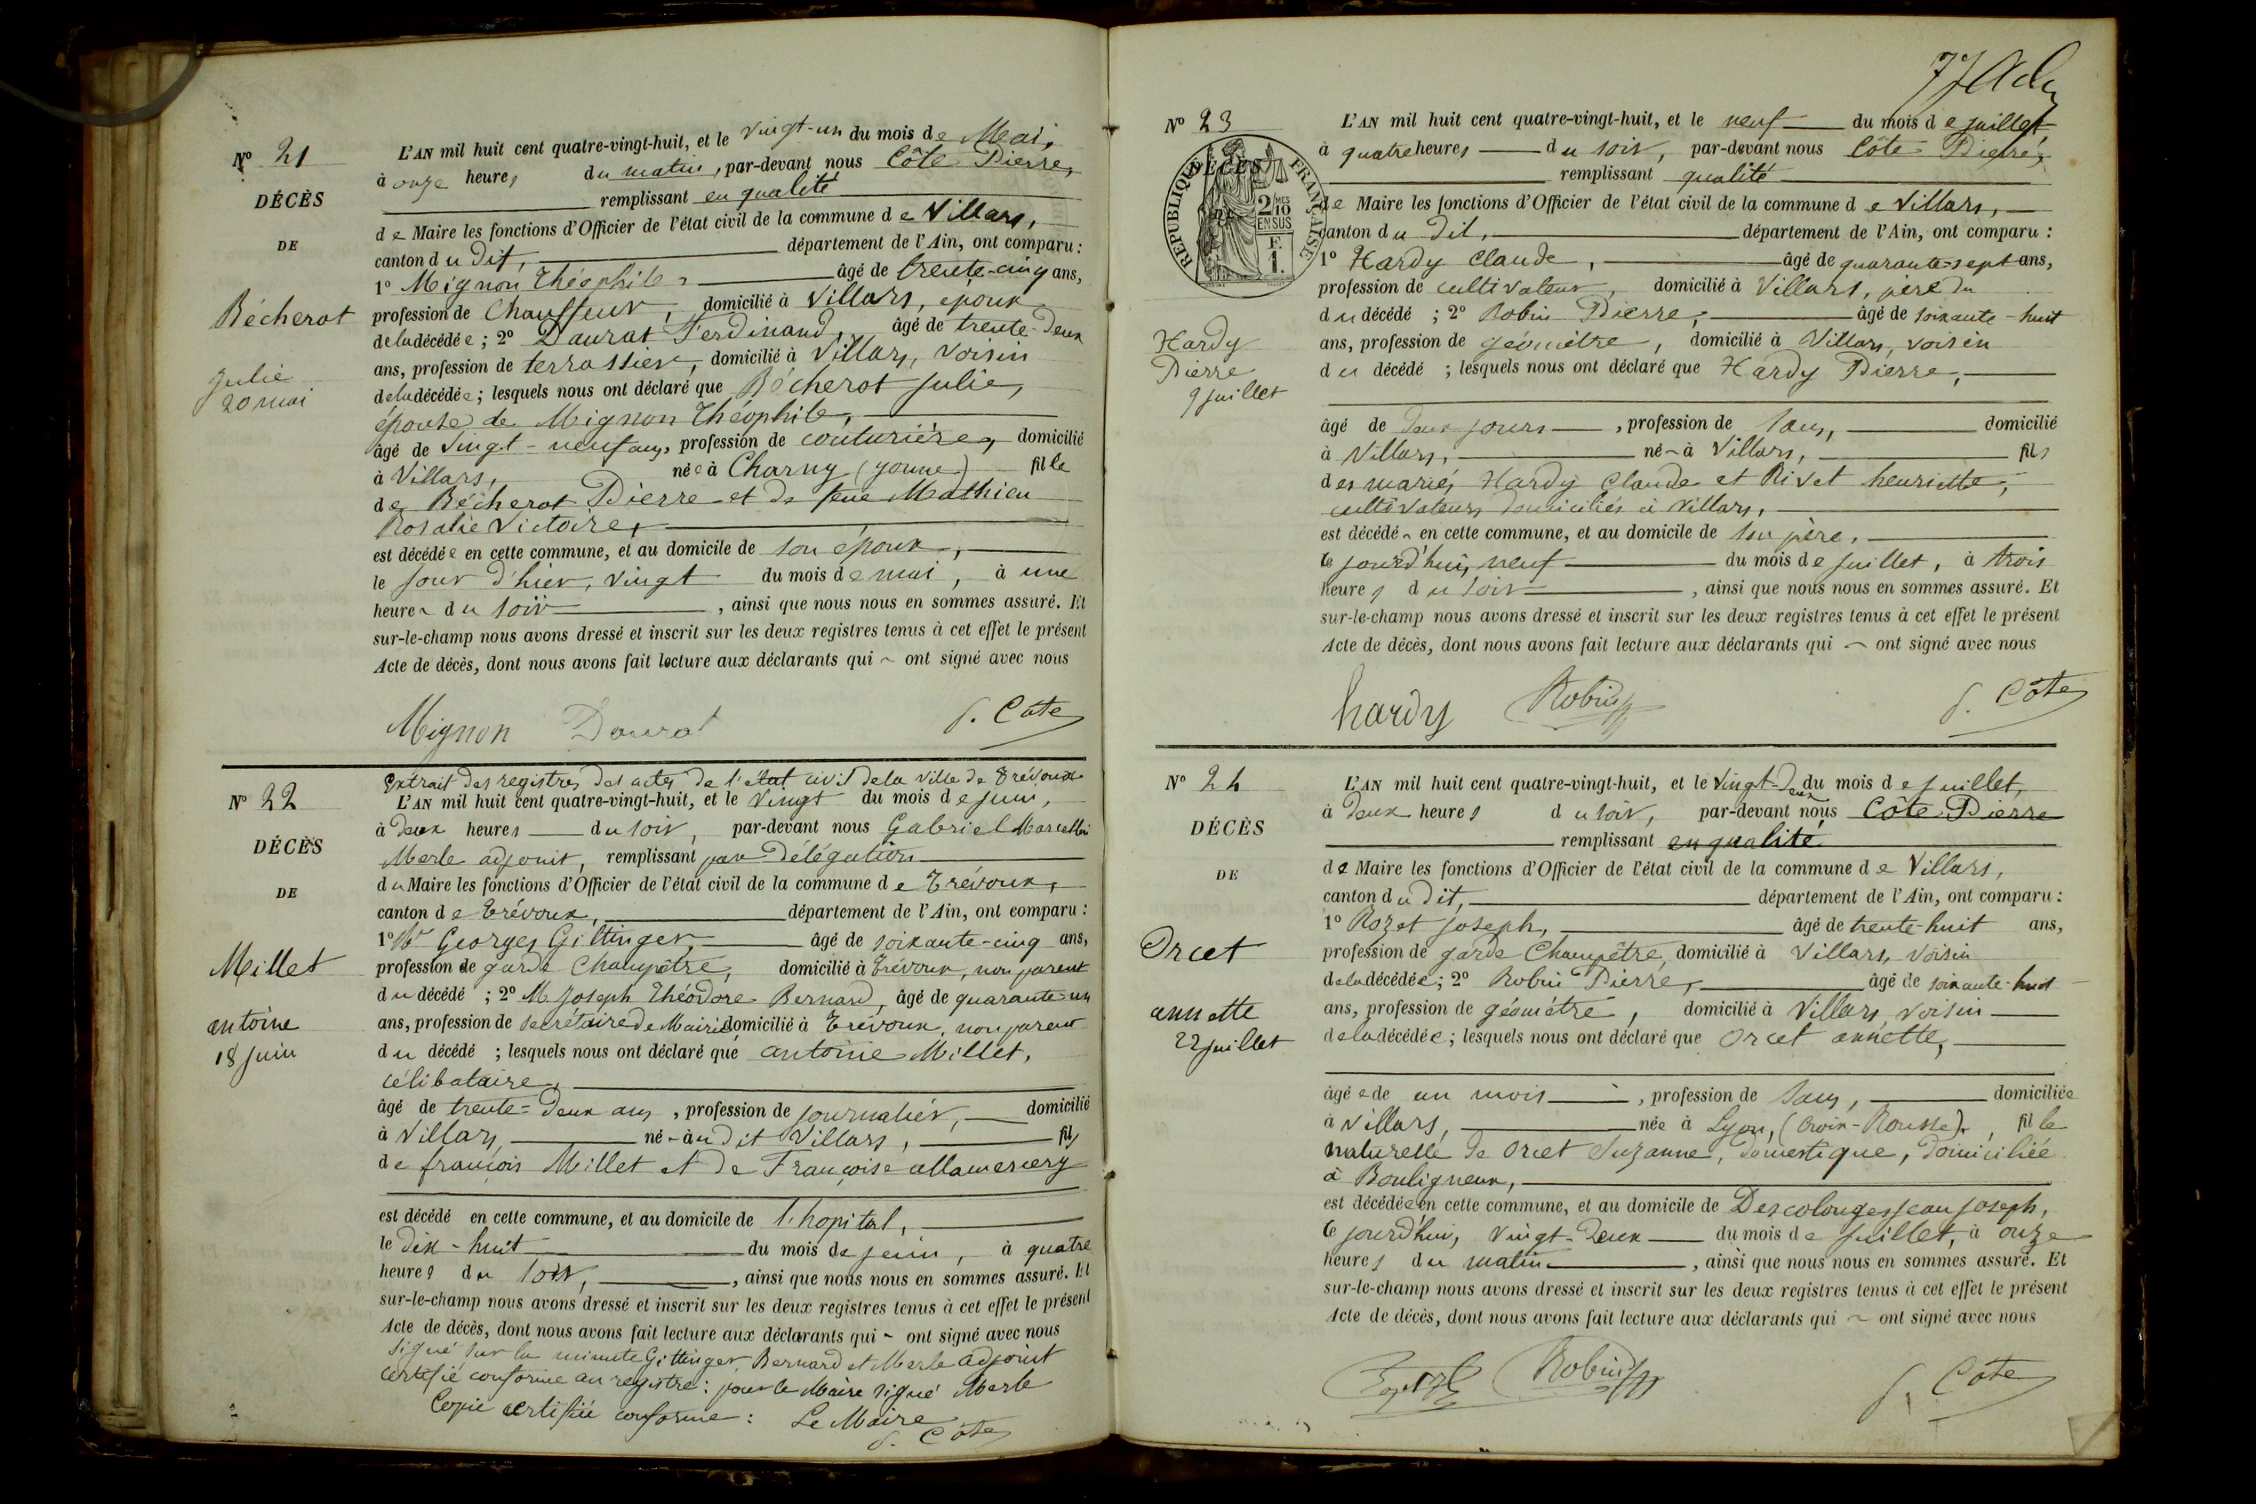 N° 21
DÉCÈS
DE
Bécherot
Julie
20 mai
L'AN mil huit cent quatre-vingt-huit, et le vingt-un du mois de Mai,
à onze heures du matin, par-devant nous Côte Pierre,
remplissant en qualité
de Maire les fonctions d'Officier de l'état civil de la commune de Villars,
canton du dit, département de l'Ain, ont comparu :
1° Mignon Théophile, âgé de trente-cinq ans,
profession de Chauffeur, domicilié à Villars, époux
de la décédée ; 2° Daurat Ferdinand, âgé de trente-deux
ans, profession de terrassier, domicilié à Villars, voisin
de la décédée ; lesquels nous ont déclaré que Bécherot Julie,
épouse de Mignon Théophile,
âgé de vingt-neuf ans, profession de couturière, domicilié
à Villars, née à Charny (yonne) fille
de Bécherot Pierre et de feue Mathieu
Rosalie Victoire,
est décédée en cette commune, et au domicile de son époux,
le jour d'hier, vingt du mois de mai, à une
heure du soir, ainsi que nous nous en sommes assuré. Et
sur-le-champ nous avons dressé et inscrit sur les deux registres tenus à cet effet le présent
Acte de décès, dont nous avons fait lecture aux déclarants qui ont signé avec nous
Mignon Daurat P. Côte
N° 22
DÉCÈS
DE
Millet
antoine
18 juin
Extrait des registres des actes de l'état civil de la ville de Trévoux
L'AN mil huit cent quatre-vingt-huit, et le vingt du mois de juin,
à deux heures du soir, par-devant nous Gabriel Marcellin
Merle adjoint, remplissant par délégation
du Maire les fonctions d'Officier de l'état civil de la commune de Trévoux,
canton de Trévoux, département de l'Ain, ont comparu :
1° Mr Georges Gittinger, âgé de soixante-cinq ans,
profession de garde Champêtre, domicilié à Trévoux, non parent
du décédé ; 2° M Joseph Théodore Bernard, âgé de quarante un
ans, profession de secrétaire de Mairie domicilié à Trévoux, non parent
du décédé ; lesquels nous ont déclaré que antoine Millet,
célibataire,
âgé de trente-deux ans, profession de journalier, domicilié
à Villars, né au dit Villars, fils
de françois Millet et de Françoise allamercery
est décédé en cette commune, et au domicile de l'hopital,
le dix-huit du mois de juin, à quatre
heures du soir, ainsi que nous nous en sommes assuré. Et
sur-le-champ nous avons dressé et inscrit sur les deux registres tenus à cet effet le présent
Acte de décès, dont nous avons fait lecture aux déclarants qui ont signé avec nous
Signé sur la minute Gittinger Bernard et Merle adjoint
certifié conforme au registre : pour le Maire signé Merle
Copie certifiée conforme : Le Maire
P. Côte
N° 23
DÉCÈS
RÉPUBLIQUE FRANÇAISE
2/10 MES
EN SUS
F.
1.
Hardy
Pierre
9 juillet
L'AN mil huit cent quatre-vingt-huit, et le neuf du mois de juillet
à quatre heures du soir, par-devant nous Côte Pierre,
remplissant qualité
de Maire les fonctions d'Officier de l'état civil de la commune de Villars,
canton du dit, département de l'Ain, ont comparu :
1° Hardy Claude, âgé de quarante-sept ans,
profession de cultivateur, domicilié à Villars, père du
du décédé ; 2° Robin Pierre, âgé de soixante-huit
ans, profession de géomètre, domicilié à Villars, voisin
du décédé ; lesquels nous ont déclaré que Hardy Pierre,
âgé de deux jours, profession de sans, domicilié
à Villars, né à Villars, fils
des mariés Hardy Claude et Rivet henriette,
cultivateurs domiciliés à Villars,
est décédé en cette commune, et au domicile de son père,
ce jourd'hui, neuf du mois de juillet, à trois
heures du soir, ainsi que nous nous en sommes assuré. Et
sur-le-champ nous avons dressé et inscrit sur les deux registres tenus à cet effet le présent
Acte de décès, dont nous avons fait lecture aux déclarants qui ont signé avec nous
hardy Robin P. Côte
N° 24
DÉCÈS
DE
Orcet
annette
22 juillet
L'AN mil huit cent quatre-vingt-huit, et le vingt-deux du mois de juillet,
à deux heures du soir, par-devant nous Côte Pierre
remplissant en qualité
de Maire les fonctions d'Officier de l'état civil de la commune de Villars,
canton du dit, département de l'Ain, ont comparu :
1° Rozet joseph, âgé de trente-huit ans,
profession de garde Champêtre, domicilié à Villars, voisin
de la décédée ; 2° Robin Pierre, âgé de soixante-huit
ans, profession de géomètre, domicilié à Villars, voisin
de la décédée ; lesquels nous ont déclaré que Orcet annette,
âgée de un mois, profession de sans, domiciliée
à Villars, née à Lyon, (Croix-Rousse), fille
naturelle de Orcet Suzanne, domestique, domiciliée
à Bouligneux,
est décédée en cette commune, et au domicile de Descolonges jean joseph,
ce jourd'hui, vingt-deux du mois de juillet, à onze
heures du matin, ainsi que nous nous en sommes assuré. Et
sur-le-champ nous avons dressé et inscrit sur les deux registres tenus à cet effet le présent
Acte de décès, dont nous avons fait lecture aux déclarants qui ont signé avec nous
Robin P. Côte